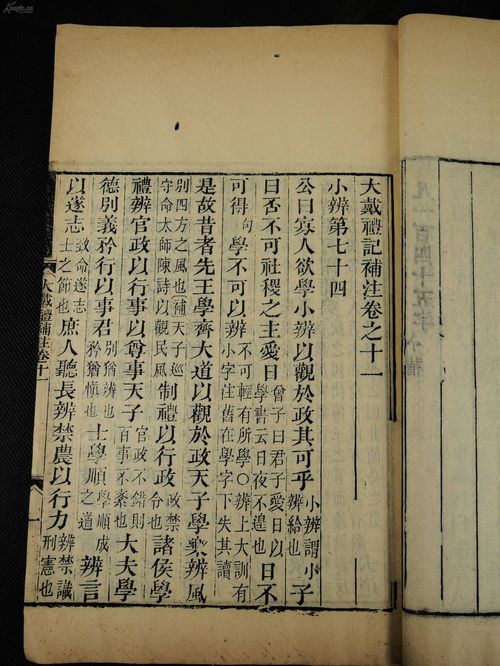 大戴禮記補注卷之十一
小辨第七十四
公曰寡人欲學小辨以觀於政其可乎小辨謂小辨給也子
曰否不可社稷之主愛日曾子曰君子愛日以學書云日夜不遑也日不
可得句學不可以辨不可輕有所學○辨上大訓有小字注舊在學字下失其讀
是故昔者先王學齊大道以觀於政天子學樂辨風
別四方之風也補天子巡守命太師陳詩以觀民風制禮以行政政禁令也諸侯學
禮辨官政以行事以尊事天子官政不錯則百事不紊也大夫學
德別義矜行以事君別猶辨也矜猶慎也士學順學順成之道辨言
以遂志致命遂志士之節也庶人聽長辨禁農以行力辨禁識刑憲也
大戴禮補注卷十一
一
凡一百四十五年
Kongfz.cn